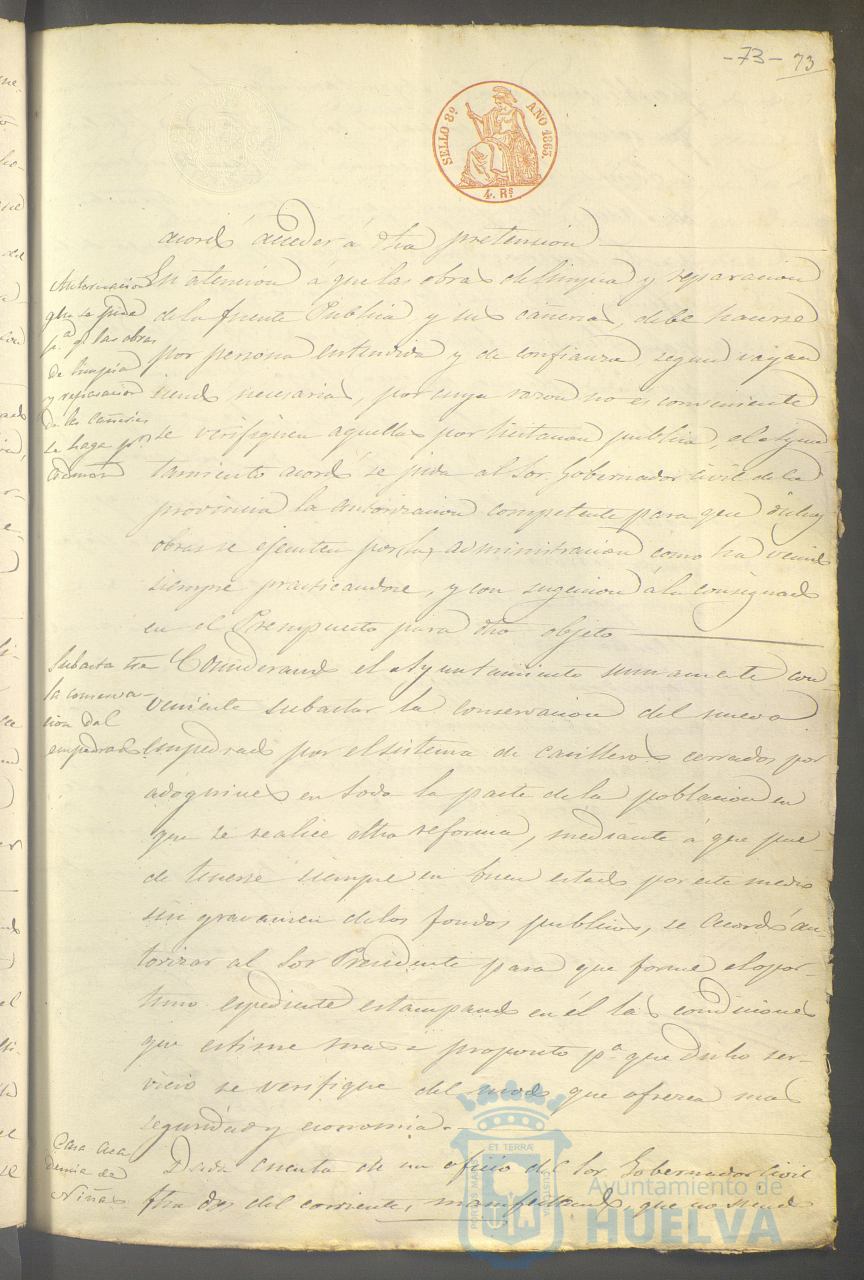 -73- 73
SELLO 8º AÑO 1863.
4. Rs
acordó acceder á dha pretension
Autorizacion
que se pida
pª q. las obras
de limpia
y reparacion
de las cañerias
se haga pr.
Admon
En atencion a que las obras de limpia y reparacion
de la fuente Publica y sus cañerias, debe hacerse
por persona entendida y de confianza segun vayan
siendo necesarias, por cuya razon no es conveniente
se verifiquen aquellas por licitacion publica, el Ayun-
tamiento acordó se pida al Sor. Gobernador Civil de la
provincia la autorizacion competente para que dichas
obras se ejecuten por la administracion como ha venido
siempre practicandose, y con sugecion á lo consignado
en el Presupuesto para dho objeto
Subasta
la conserva-
cion del
empedrado
Considerando el Ayuntamiento sumamente con
veniente subastar la conservacion del nuevo
empedrado por el sistema de casilleros cerrados por
adoquines en toda la parte de la poblacion en
que se realice dha reforma, mediante á que pue-
de tenerse siempre en buen estado por este medio
sin gravamen de los fondos publicos, se acordó au-
torizar al Sor Presidente para que forme el opor-
tuno espediente estampando en él las condiciones
que estime mas a proposito pª. que dicho ser-
vicio se verifique del modo que ofrezca mas
seguridad y economia.
Casa Aca
demia de
Niñas
Dada cuenta de un oficio del Sor Gobernador Civil
fha dos del corriente, manifestando, que no siendo
Ayuntamiento de
HUELVA